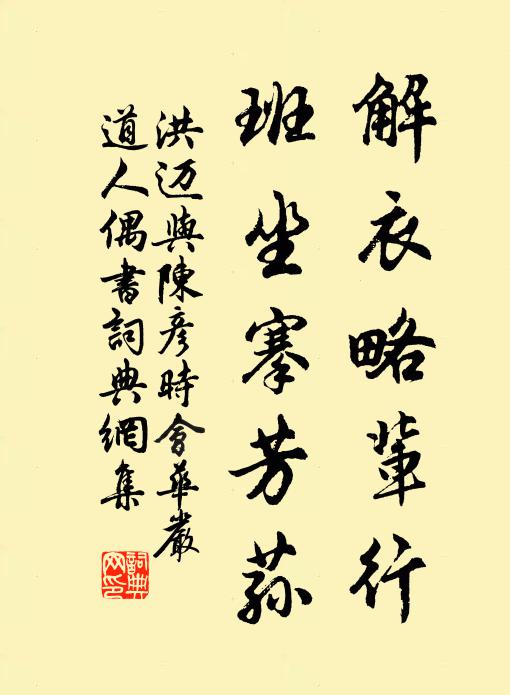 解衣略輩行
班坐搴芳蓀
洪迈與陳彦時會華嚴
道人偶書詞典網集
詞典
网印